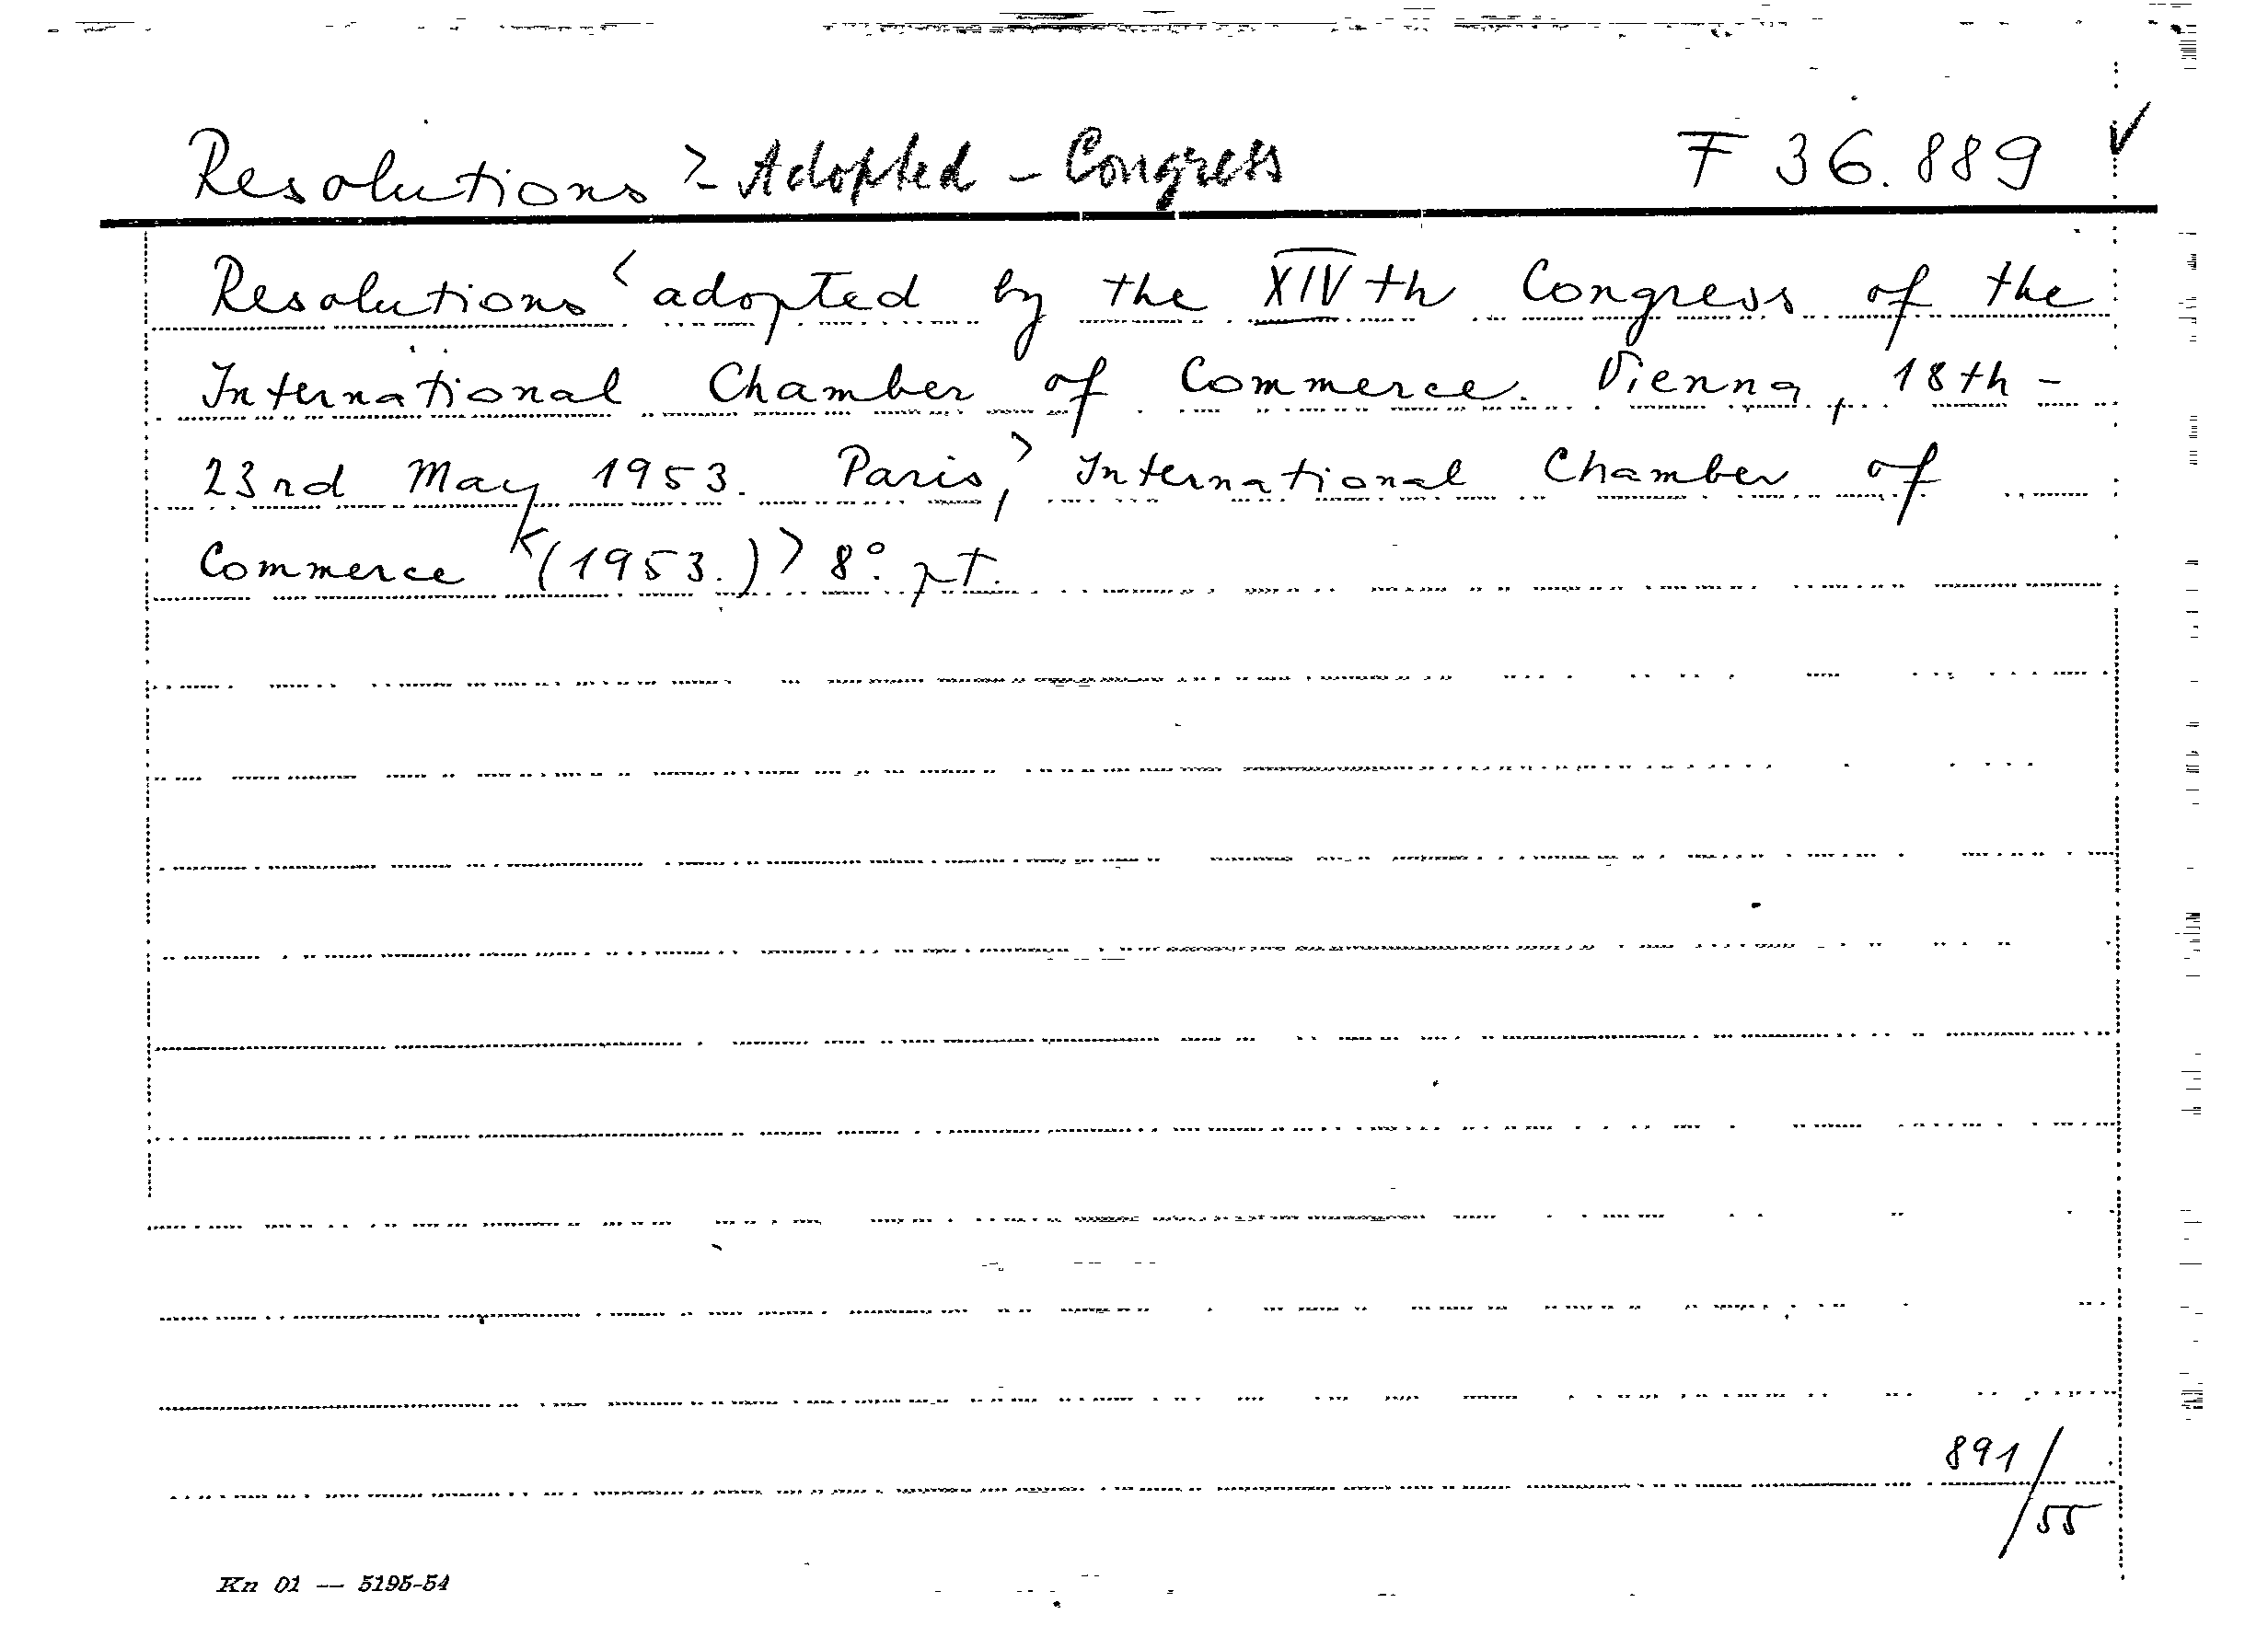 Resolutions >- Adopted - Congress F 36.889 √
Resolutions < adopted by the XIVth Congress of the
International Chamber of Commerce. Vienna, 18th -
23rd May 1953. Paris, > International Chamber of
Commerce <(1953.)> 8° pt.
891/55
Kn 01 — 5195-54